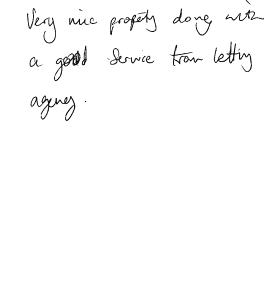 Very nice property along with
a good service from letting
agency.